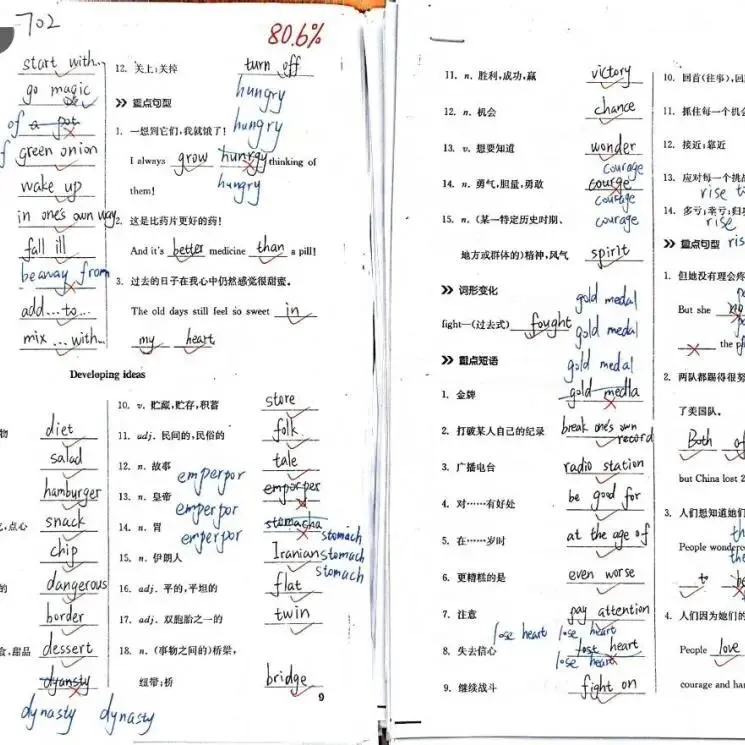 702
80.6%
start with...
go magic
of a pot
green onion
wake up
in one's own way
fall ill
be away from
add...to...
mix...with...
12. 关上;关掉 turn off
hungry
重点句型
1. 一想到它们,我就饿了! hungry
I always grow hunrgy thinking of
them! hungry
2. 这是比药片更好的药!
And it's better medicine than a pill!
3. 过去的日子在我心中仍然感觉很甜蜜。
The old days still feel so sweet in
my heart
Developing ideas
物 diet
salad
hamburger
点心 snack
chip
的 dangerous
border
食,甜品 dessert
dyansty
dynasty dynasty
10. v. 贮藏,贮存,积蓄 store
11. adj. 民间的,民俗的 folk
12. n. 故事 tale
emperpor
13. n. 皇帝 emporper
emperpor
14. n. 胃 stomacha stomach
emperpor
15. n. 伊朗人 Iranian stomach
stomach
16. adj. 平的,平坦的 flat
17. adj. 双胞胎之一的 twin
18. n. (事物之间的)桥梁,
纽带;桥 bridge
9
11. n. 胜利,成功,赢 victory
12. n. 机会 chance
13. v. 想要知道 wonder
courage
14. n. 勇气,胆量,勇敢 courge
courage
15. n. (某一特定历史时期、 courage
地方或群体的)精神,风气 spirit
词形变化
gold medal
fight—(过去式) fought
gold medal
重点短语
gold medal
1. 金牌 gold medla
2. 打破某人自己的纪录 break one's own record
3. 广播电台 radio station
4. 对……有好处 be good for
5. 在……岁时 at the age of
6. 更糟糕的是 even worse
7. 注意 pay attention
lose heart lose heart
8. 失去信心 lost heart
lose heart
9. 继续战斗 fight on
10. 回首(往事),回
11. 抓住每一个机会
12. 接近;靠近
13. 应对每一个挑战
rise
14. 多亏;幸亏;归
rise
重点句型
1. 但她没有理会疼
But she
the
2. 两队都踢得很努
了美国队。
Both of
but China lost 2
3. 人们想知道她们
People wondered
to
4. 人们因为她们的
People love
courage and har